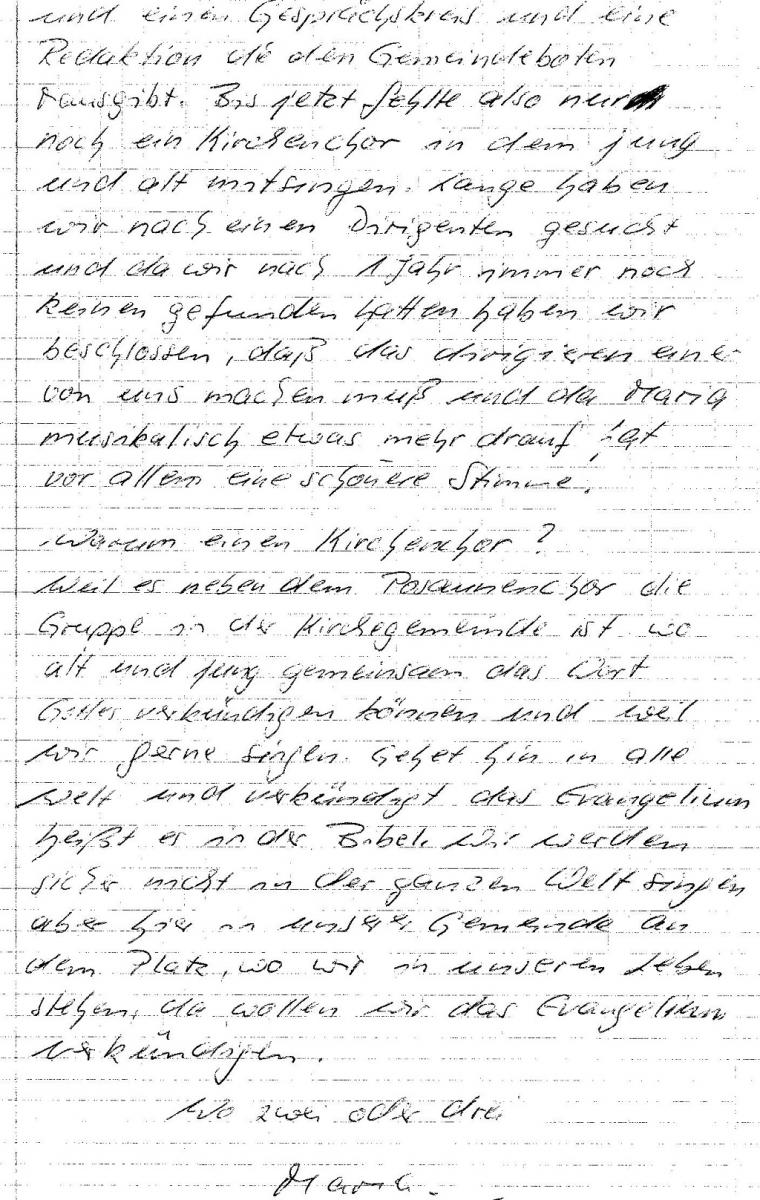 und einen Gesprächskreis und eine
Redaktion die den Gemeindeboten
rausgibt. Bis jetzt fehlte also nur
noch ein Kirchenchor in dem jung
und alt mitsingen. Lange haben
wir nach einen Dirigenten gesucht
und da wir nach 1 Jahr immer noch
keinen gefunden hatten haben wir
beschlossen, daß das dirigieren einer
von uns machen muß und da Maria
musikalisch etwas mehr drauf hat
vor allem eine schönere Stimme.
Warum einen Kirchenchor?
Weil es neben dem Posaunenchor die
Gruppe in der Kirchegemeinde ist wo
alt und jung gemeinsam das Wort
Gottes verkündigen können und weil
wir gerne singen. Gehet hin in alle
Welt und verkündigt das Evangelium
heißt es in der Bibel. Wir werden
sicher nicht in der ganzen Welt singen
aber hier in unserer Gemeinde an
dem Platz, wo wir in unseren Leben
stehen, da wollen wir das Evangelium
verkündigen.
Wo zwei oder drei